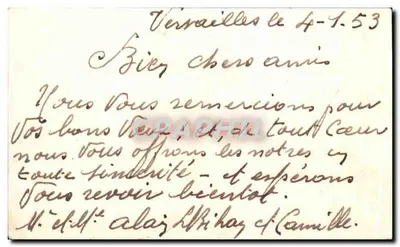 Versailles le 4-1.53
Bien chers amis
Nous vous remercions pour
vos bons vœux; et, de tout cœur
nous vous offrons les notres en
toute sincérité - et espérons
vous revoir bientot.
Mr et Me alain LBihan et Camille.